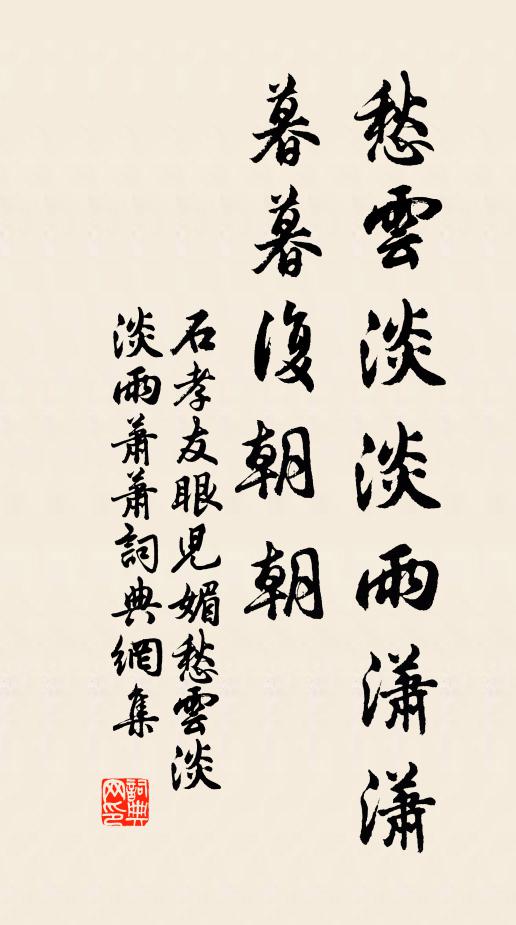 愁雲淡淡雨瀟瀟
暮暮復朝朝
石孝友眼児媚愁雲淡
淡雨蕭蕭詞典網集
詞典
网印